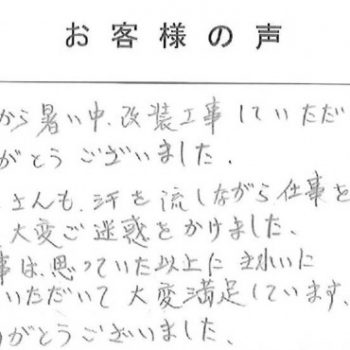 お客様の声
から暑い中、改装工事していただ
がとうございました。
さんも、汗を流しながら仕事を
大変ご迷惑をかけました。
事は、思っていた以上に きれいに
いただいて 大変満足しています。
りがとうございました。